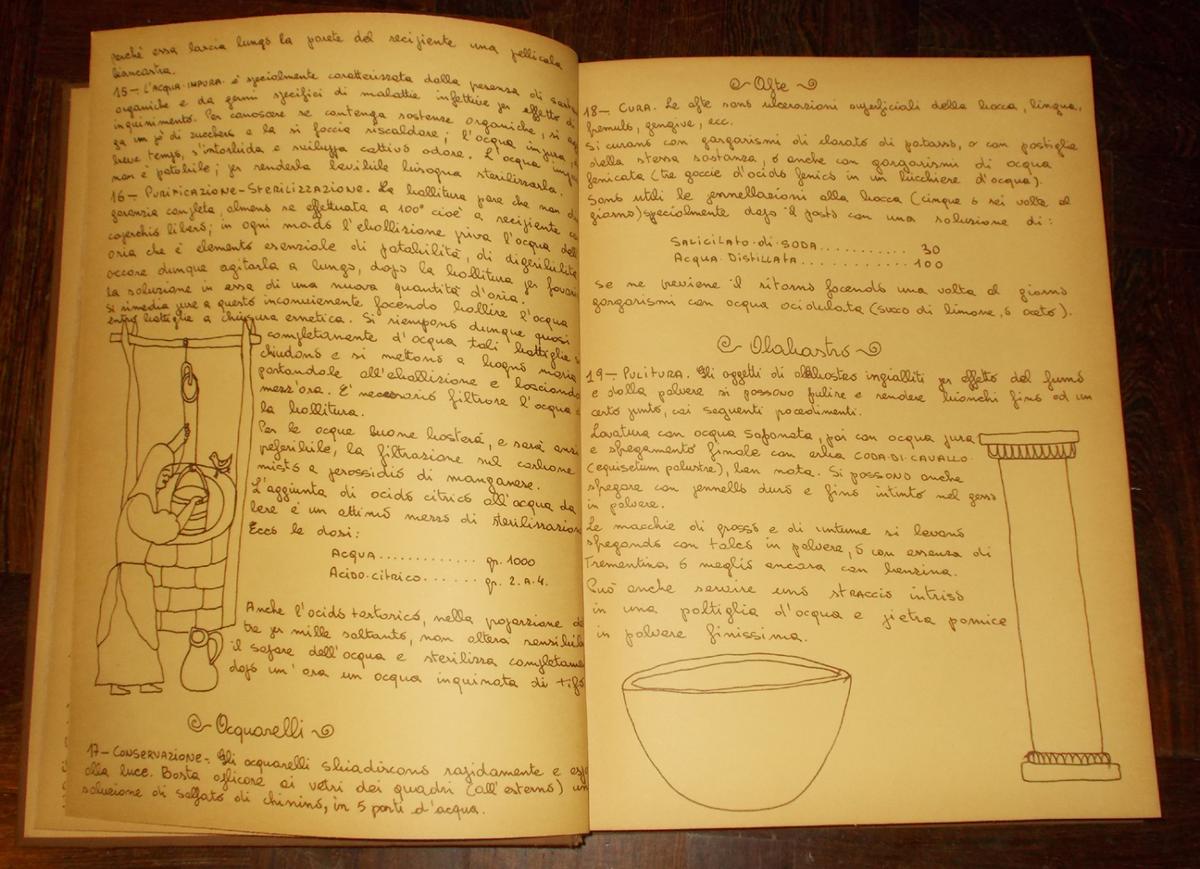 perchè essa lascia lungo la parete del recipiente una pellicola
biancastra.
15- L'ACQUA IMPURA è specialmente caratterizzata dalla presenza di
organiche e da germi specifici di malattie infettive per effetto di
inquinimento. Per conoscere se contenga sostenze organiche, si
ga un pò di zucchero e la si foccia riscaldare; l'acqua impura,
breve tempo, s'intorbida e sviluppa cattivo odore. L'acqua
non è potabile; per renderla bevibile bisogna sterilizzarla.
16- PURIFICAZIONE-STERILIZZAZIONE. La bollitura pare che non
garanzia completa, almeno se effettuata a 100° cioè a recipiente
coperchio libero; in ogni modo l'ebollizione priva l'acqua dell'
aria che è elemento esenziale di potabilità, di digeribilità
occore dunque agitarla a lungo, dopo la bollitura per favori
la soluzione in essa di una nuova quantità d'aria.
Si rimedia pure a questo inconveniente facendo bollire l'acqua
entro bottiglie a chiusura ermetica. Si riempono dunque quasi
completamente d'acqua tali bottiglie si
chiudono e si mettono a bagno maria
portandole all'ebollizione e lasciando
mezz'ora. È necessario filtrare l'acqua
la bollitura.
Per le acque buone basterà, e sarà anzi
preferibile, la filtrazione sul carbone
misto a perossido di manganese.
L'aggiunta di acido citrico all'acqua da
bere è un ottimo mezzo di sterilizzazion
Ecco le dosi:
ACQUA ............ gr. 1000
ACIDO-CITRICO ....... gr. 2. A. 4.
Anche l'acido tartarico, nella proporzione de
tre per mille soltanto, non altera sensibil
il sapore dell'acqua e sterilizza completame
dopo un'ora un acqua inquinata di tifo
Acquarelli
17- CONSERVAZIONE-. Gli acquarelli sbiadiscono rapidamente e esp
alla luce. Basta aplicare ai vetri dei quadri (all'esterno) un
soluzione di solfato di chinino, in 5 parti d'acqua.
Afte
18- CURA. Le afte sono ulcerazioni superficiali della bocca, lingua,
fremulo, gengive, ecc.
Si curano con gargarismi di clorato di potasso, o con pastiglie
della stessa sostanza, o anche con gargarismi di acqua
fenicata (tre goccie d'acido fenico in un bicchiere d'acqua).
Sono utili le pennellazioni alla bocca (cinque o sei volte al
giorno) specialmente dopo il pasto con una soluzione di:
SALICILATO-di-SODA .......... 30
ACQUA DISTILLATA ............ 100
se ne previene il ritorno facendo una volta al giorno
gargarismi con acqua acidulata (succo di limone, o aceto).
Alabastro
19-. PULITURA. Gli oggetti di alabastro ingialliti per effetto del fumo
e dalla polvere si possono pulire e rendere bianchi fino ad un
certo punto, coi seguenti procedimenti.
Lavatura con acqua saponata, poi con acqua pura
e spegamento finale con erba CODA-DI-CAVALLO
(equisetum palustre), ben nota. Si possono anche
sfregare con pennello duro e fino intinto nel gesso
in polvere.
Le macchie di grasso e di untume si levano
sfregando con talco in polvere, o con essenza di
Trementina o meglio ancora con benzina.
Può anche servire uno straccio intriso
in una poltiglia d'acqua e pietra pomice
in polvere finissima.